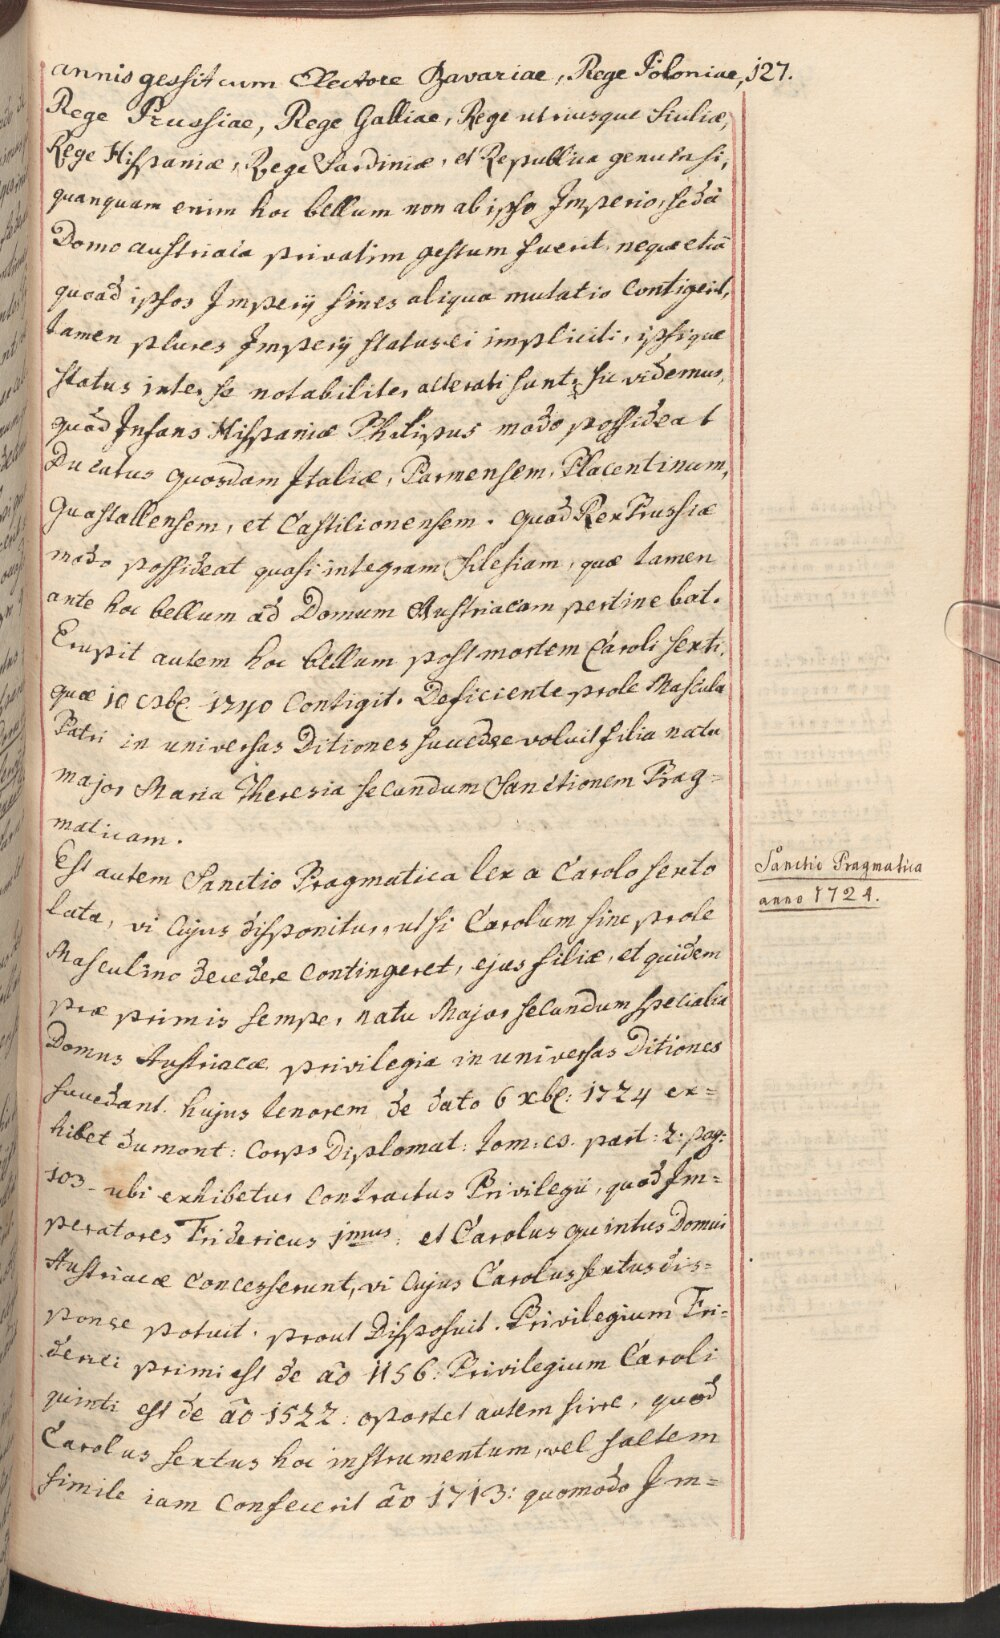 annis gessit cum Electore Bavariae, Rege Poloniae, 127.
Rege Prussiae, Rege Galliae, Rege utriusque Siciliæ,
Rege Hispaniæ, Rege Sardiniæ, et Republica genuensi,
quanquam enim hoc bellum non ab ipso Imperio, sed à
Domo austriaca privatim gestum fuerit, neque etiã
quoad ipsos Imperij fines aliqua mutatio contigerit,
tamen plures Imperij status ei impliciti, ipsique
status inter se notabiliter alterati sunt; sic videmus,
quod Infans Hispaniæ Philippus modo possideat
Ducatus quosdam Italiæ, Parmensem, Placentinum,
Guastallensem, et Castilionensem. quod Rex Prussiæ
modo possideat quasi integram Silesiam, quæ tamen
ante hoc bellum ad Domum Austriacam pertinebat.
Erupit autem hoc bellum post mortem Caroli sexti,
quæ 10 1740 contigit. Deficiente prole Mascula
Patri in universas Ditiones succedere voluit filia natu
major Maria Theresia secundum Sanctionem Prag=
maticam.
Est autem Sanctio Pragmatica lex a Carolo sexto
lata, vi cujus disponitur, ut si Carolum sine prole
Masculino decedere contingeret, ejus filiæ, et quidem
præ primis semper natu Major secundum specialia
Domus Austriacæ privilegia in universas Ditiones
succedant. hujus tenorem de dato 6 xbr: 1724 ex=
hibet dumont: Corps Diplomat: tom: part: 2: pag:
103 ubi exhibetur contractus Privilegii, quod Im=
peratores Fridericus jmus: et Carolus quintus Domui
Austriacæ concesserunt, vi cujus Carolus sextus dis=
ponere potuit. prout Disposuit. Privilegium Fri=
derici primi est de aõ 1156: Privilegium Caroli
quinti est de aõ 1522: oportet autem scire, quod
Carolus sextus hoc instrumentum, vel saltem
simile iam confecerit aõ 1713: quomodo Im=
Sanctio Pragmatica
anno 1724.